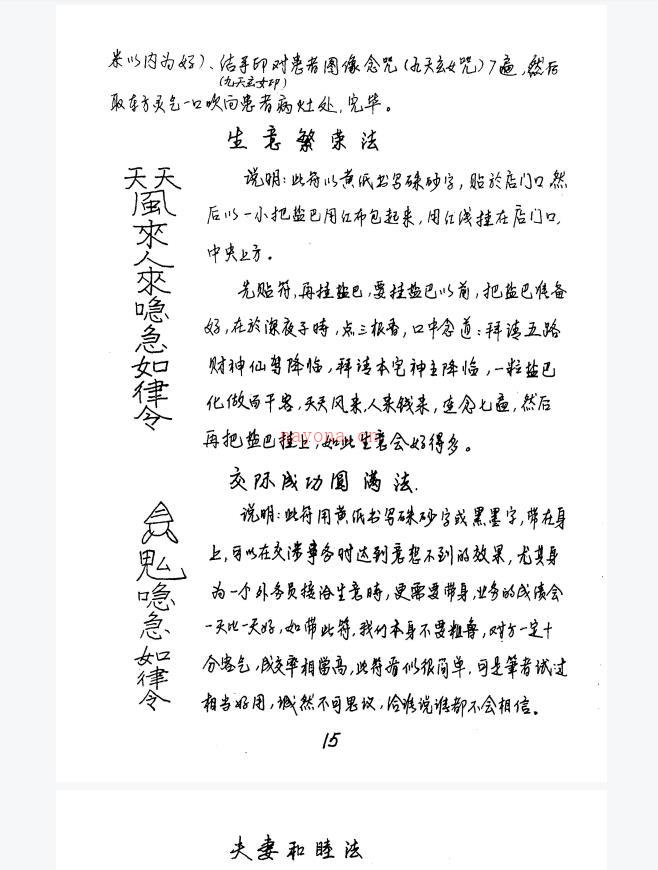 米以内为好)、结手印对患者图像念咒(九天玄女咒)7遍,然后
(九天玄女印)
取东方灵气一口吹向患者病灶处,完毕。
生意繁荣法
天天風來人來喼急如律令
说明:此符以黄纸书写硃砂字,贴於店门口,然
后以一小把盐巴用红布包起来,用红线挂在店门口,
中央上方。
先贴符,再挂盐巴,要挂盐巴以前,把盐巴准备
好,在於深夜子時,点三根香,口中念道:拜请五路
财神仙驾降临,拜请本宅神主降临,一粒盐巴
化做百千客,天天风来,人来钱来,连念七遍,然后
再把盐巴挂上,如此生意会好得多。
nayona.cn
交际成功圆满法.
喼急如律令
说明:此符用黄纸书写硃砂字或黑墨字,带在身
上,可以在交涉事务时达到意想不到的效果,尤其身
为一个外务员接洽生意時,更需要带身,业务的成绩会
一天比一天好,如带此符,我们本身不要粗鲁,对方一定十
分客气,成交率相當高,此符看似很简单,可是筆者试过
相当好用,诚然不可思议,给谁说谁都不会相信。
15
夫妻和睦法